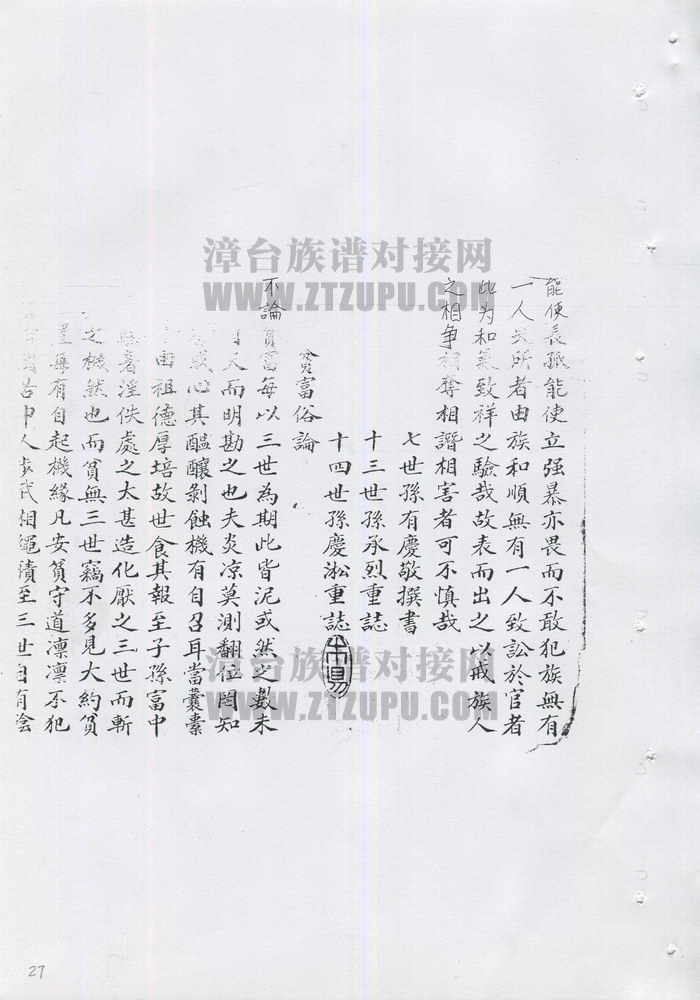 能使長孤能使立强暴亦畏而不敢犯族無有
一人失所者由族和順無有一人致訟於官者
此为和氣致祥之驗哉故表而出之以戒族人
之相争相奪相譖相害者可不慎哉
七世孫有慶敬撰書
十三世孫承烈重誌
十四世孫慶淞重誌
貧富俗論
不論貧富每以三世為期此皆泥或然之數未
天而明勘之也夫炎凉莫測翻位罔知
心其醖釀剝蝕機有自召耳當囊橐
由祖德厚培故世食其報至子孫富中
驕奢淫佚處之太甚造化厭之三世而斬
之機然也而貧無三世竊不多見大約貧
每有自起機緣凡安貧守道凜凜不犯
苦中人 相繩漬至三世自有陰
漳台族谱对接网
WWW.ZTZUPU.COM
漳台族谱对接网
WWW.ZTZUPU.COM
27